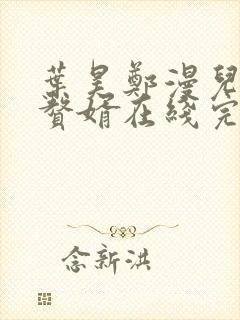 葉昊鄭漫兒
贅婿在綫完
念新洪